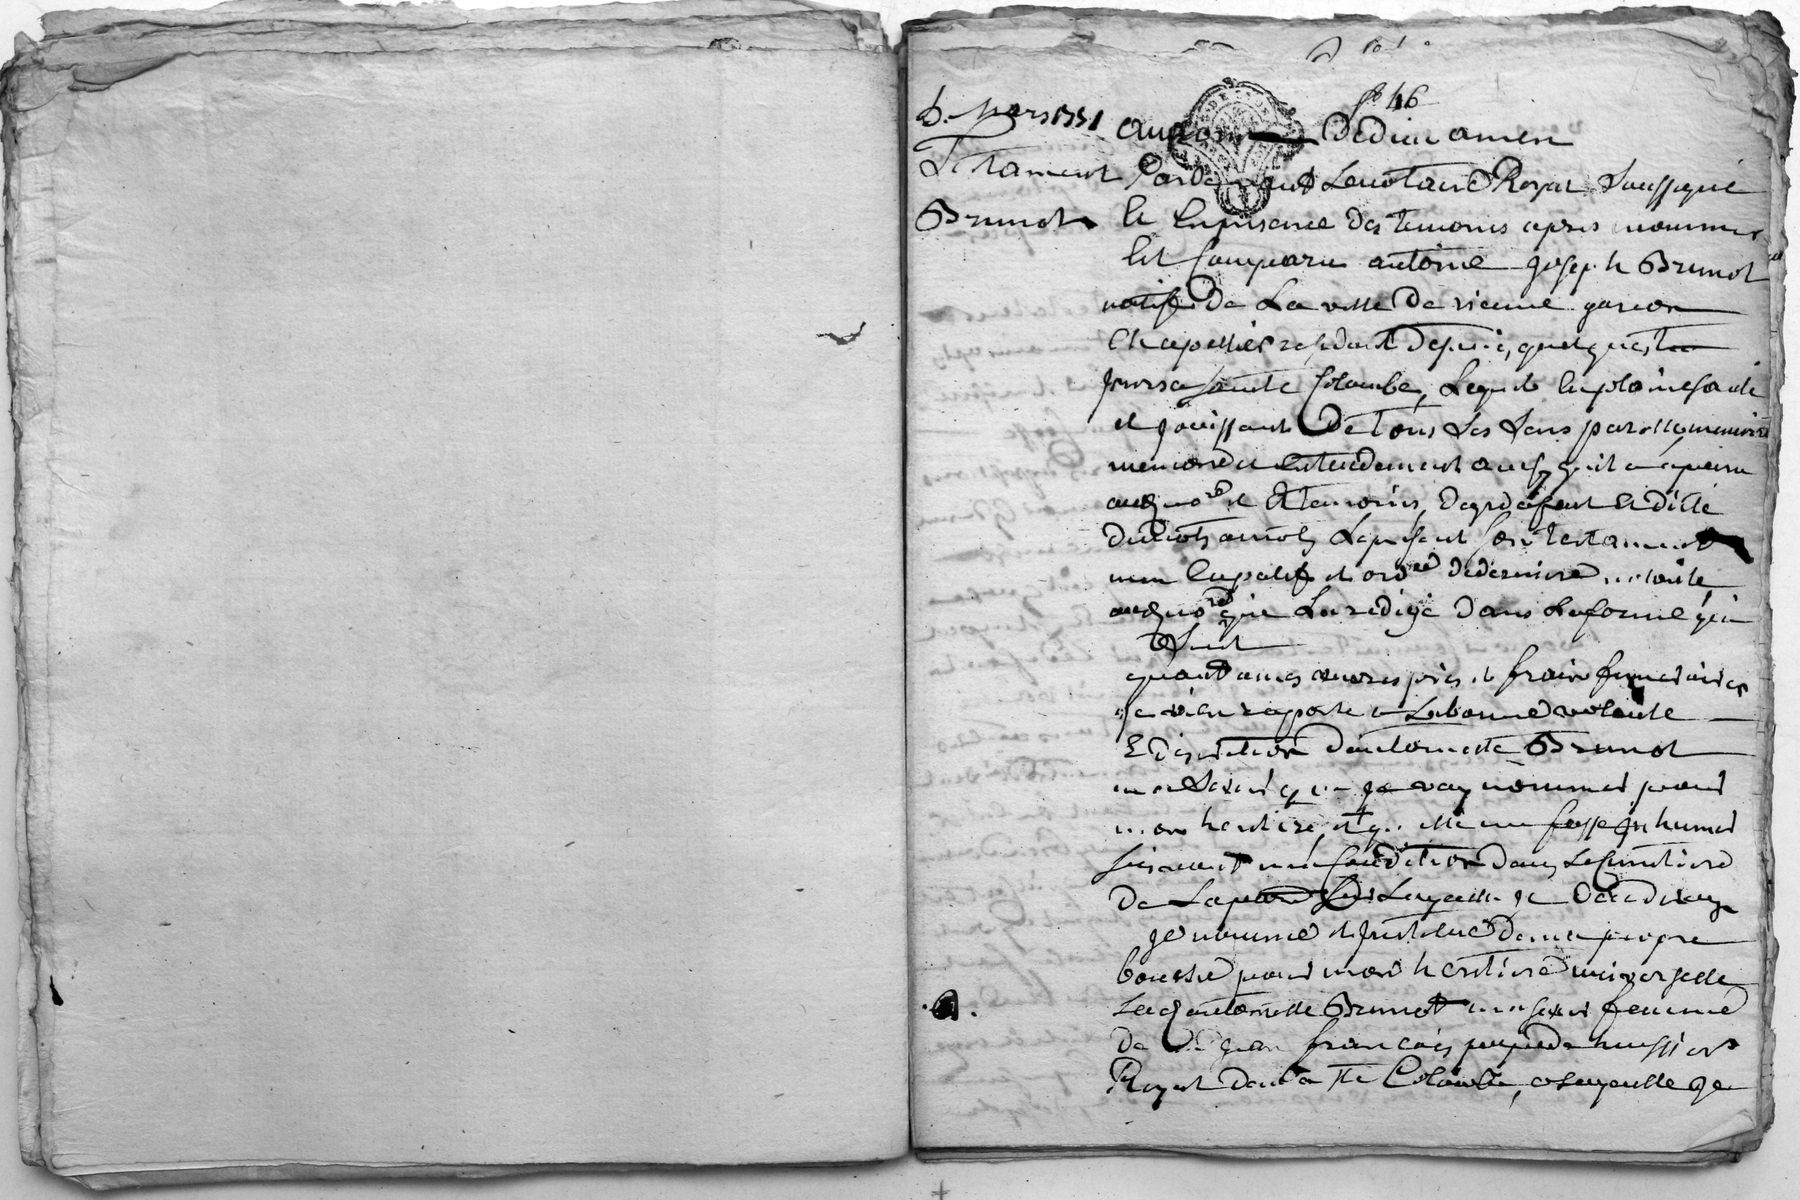 fo 46
mars 1731
Testament
Brunot
au nom de dieu amen
Pardevant Le notaire Royal soussigné
et En presence des temoins apres nommes
Est Comparu antoine joseph Brunot
natif de La ville de vienne garcon
Chapellier residant depuis quelques
jours a sainte Colombe, Lequel En pleine santé
et jouissant de tous Les sens parolle
memoire et Entendement ainsy qu'il a aparu
audit nore et temoins, de gré a fait et dicté
de mot a mot Le present son testament
nuncupatif et ordce de derniere volonte
audit nore qui L'a redigé dans La forme qui
suit
quant a mes oeuvres pies et frais funeraires
je m'en raporte a La bonne volonte
et discretion d'antoinette Brunot
ma soeur que je vay nommer pour
mon heritiere, et qu'elle me fasse inhumer
suivant ma Condition dans Le Cimetiere
de La par Laquelle je decederay
je nomme et institue de ma propre
bouche pour mon heritiere universelle
Ladt antoinette Brunot ma soeur femme
de jean françois huissier
Royal dudt Ste Colombe, a Laquelle je